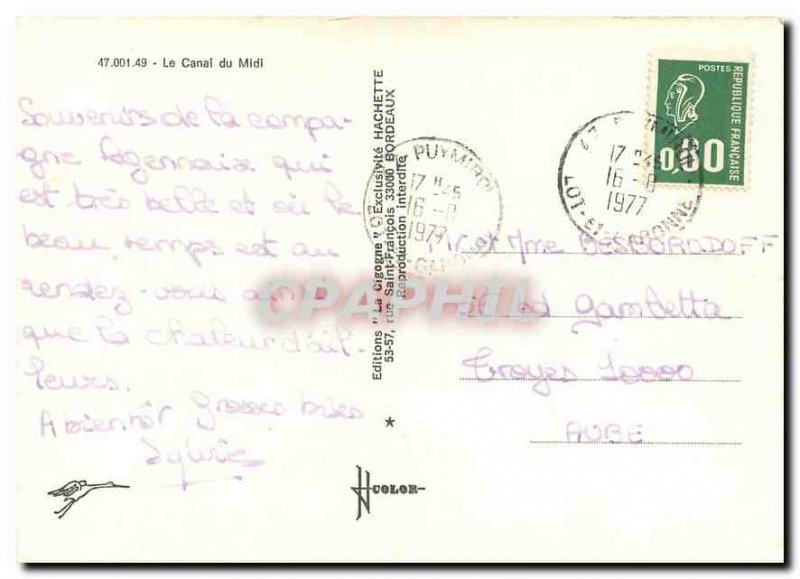 47.001.49 - Le Canal du Midi
Souvenirs de la campa-
gne Agennaise qui
est très belle et où le
beau temps est au
rendez-vous ainsi
que la chaleur d'ail-
leurs.
A bientôt Grosses bises
Sylvie
Editions "La Cigogne" Exclusivité HACHETTE
53-57, rue Saint-François 33000 BORDEAUX
Reproduction interdite
*
COLOR
PUYMIROL
17 H 45
16 -
1977
GARONNE
47
17 H 45
16 -
1977
LOT-ET-GARONNE
POSTES
REPUBLIQUE FRANÇAISE
0,80
Mr et Mme DESBORDOFF
Bd Gambetta
Troyes 10000
AUBE
CPAPHIL